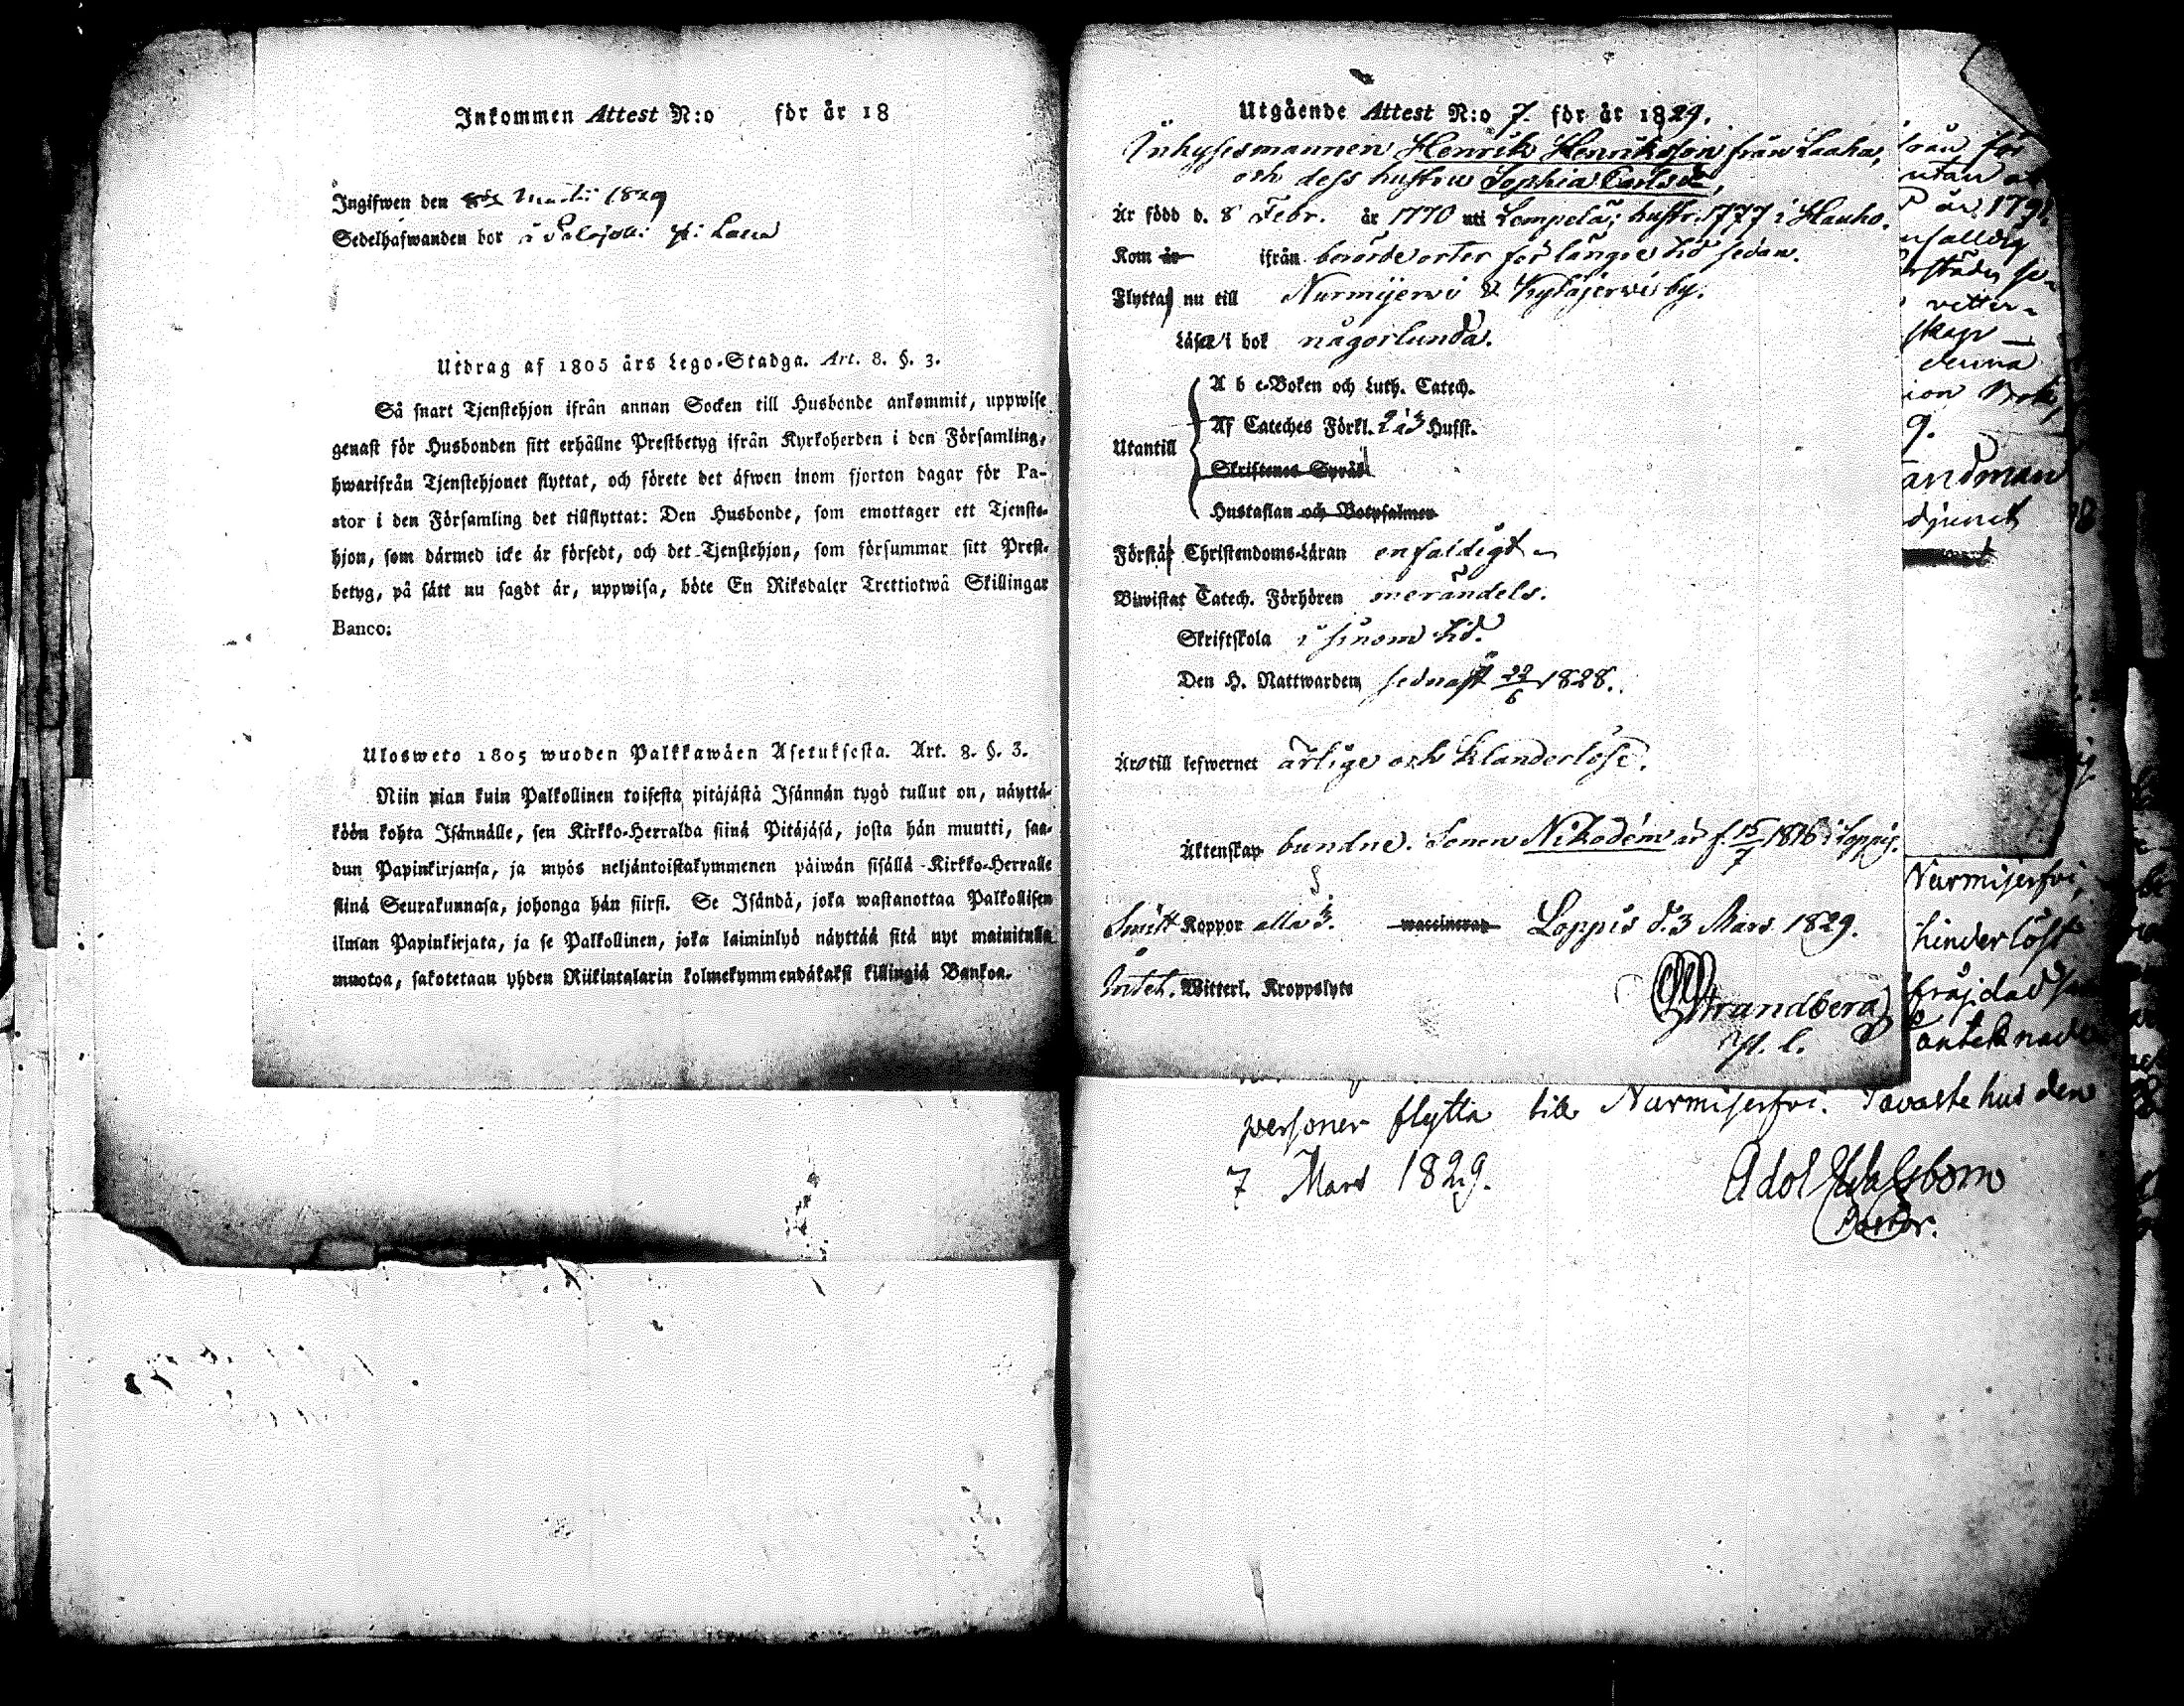 Inkommen Attest N:o för år 18
Ingifwen den 8de Martii 1829
Sedelhafwanden bor i Palojoki
Utdrag af 1805 års Lego-Stadga. Art. 8. §. 3.
Så snart Tjenstehjon ifrån annan Socken till Husbonde ankommit, uppwise
genast för Husbonden sitt erhållne Prestbetyg ifrån Kyrkoherden i den Församling,
hwarifrån Tjenstehjonet flyttat, och förete det äfwen inom fjorton dagar för Pa-
stor i den Församling det tillflyttat: Den Husbonde, som emottager ett Tjenste-
hjon, som därmed icke är försedt, och det Tjenstehjon, som försummar sitt Prest-
betyg, på sätt nu sagdt är, uppwisa, böte En Riksdaler Trettiotwå Skillingar
Banco.
Ulosweto 1805 wuoden Palkkawäen Asetuksesta. Art. 8. §. 3.
Niin pian kuin Palkollinen toisesta pitäjästä Isännän tygö tullut on, näyttä-
köön kohta Isännälle, sen Kirkko-Herralda siinä Pitäjäsä, josta hän muutti, saa-
dun Papinkirjansa, ja myös neljäntoistakymmenen päiwän sisällä Kirkko-Herralle
siinä Seurakunnasa, johonga hän siirsi. Se Isändä, joka wastanottaa Palkollisen
ilman Papinkirjata, ja se Palkollinen, joka laiminlyö näyttää sitä nyt mainitulla
muotoa, sakotetaan yhden Riikintalarin kolmekymmendäkaksi killingiä Bankoa.
Utgående Attest N:o 7. för år 1829.
Inhysesmannen Henrik Henriksson från Laaka,
och dess hustru Sophia Carlsdr,
Är född d. 8 Febr. år 1770 uti Lempelä; hustr. 1777 i Hauho.
Kom år ifrån berörde orter för längre tid sedan.
Flytta nu till Nurmijerwi & Kytäjerwi by.
Läsa i bok någorlunda.
Utantill
A b c-Boken och Luth. Catech.
Af Cateches Förkl. 2 à 3 Hufst.
Skriftenes Språk
Hustaflan och Botpsalmer
Förstår Christendoms-Läran enfaldigt
Biwistat Catech. Förhören merändels.
Skriftskola i sinom tid.
Den H. Nattwarden sednast 22/6 1828.
Äro till lefwernet ärlige och klanderlöse.
Äktenskap bundne. Sonen Nikodém är f. 15/7 1816 i Loppis.
Smitt Koppor alla 3. waccinerad Loppis d. 3 Mars 1829.
Intet. Witterl. Kroppslyte
Strandberg
från för
utan
år 1791
rstädes se-
vetter-
skap
denna
9.
andman
djunct
Nurmijerfvi,
hinderlöst
fräjdad
antecknad
personer flytta till Nurmijerfvi. Tavastehus den
7 Mars 1829.
Adolf
Pastor.